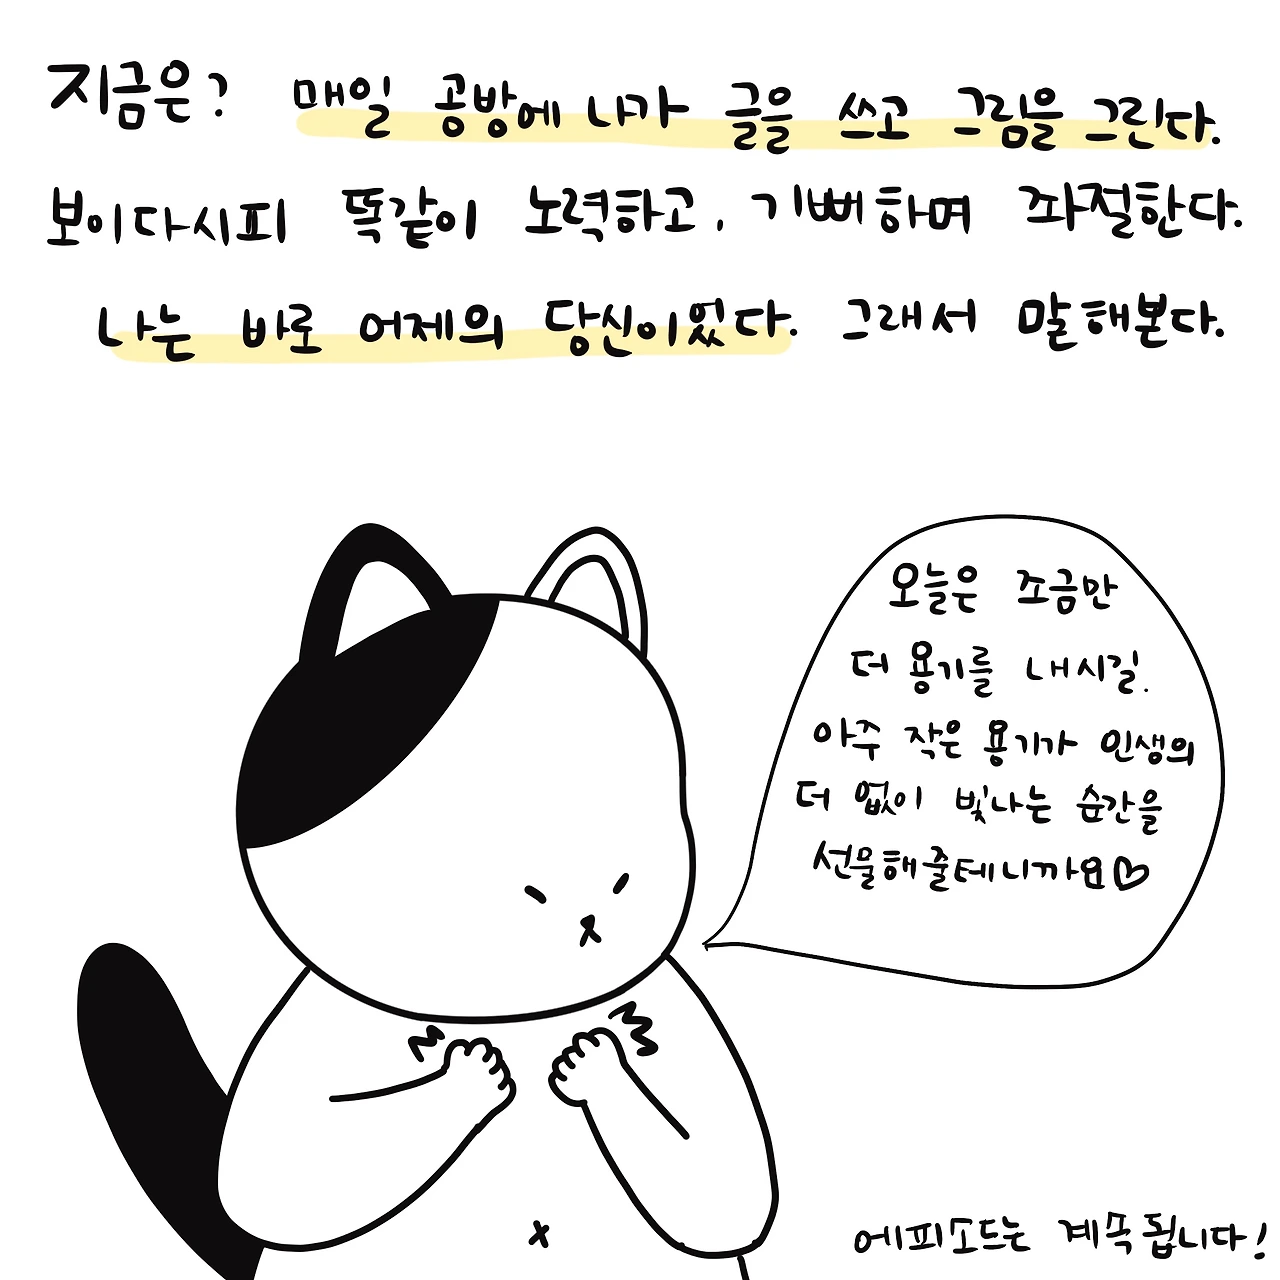 지금은? 매일 공방에 나가 글을 쓰고 그림을 그린다.
보이다시피 똑같이 노력하고, 기뻐하며 좌절한다.
나는 바로 어제의 당신이었다. 그래서 말해본다.
오늘은 조금만
더 용기를 내시길.
아주 작은 용기가 인생의
더 없이 빛나는 순간을
선물해줄테니까요♡
에피소드는 계속됩니다!